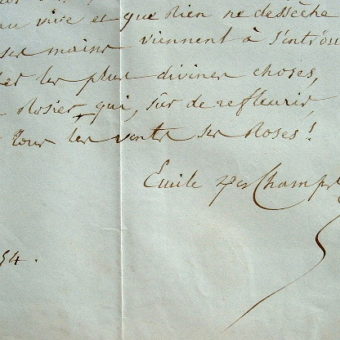 vive et que Rien ne dessèche
mains viennent à s'entr'ou
et les plus divines choses,
Rosier qui, sûr de refleurir,
tous les vents ses Roses!
Emile DesChamps
54.